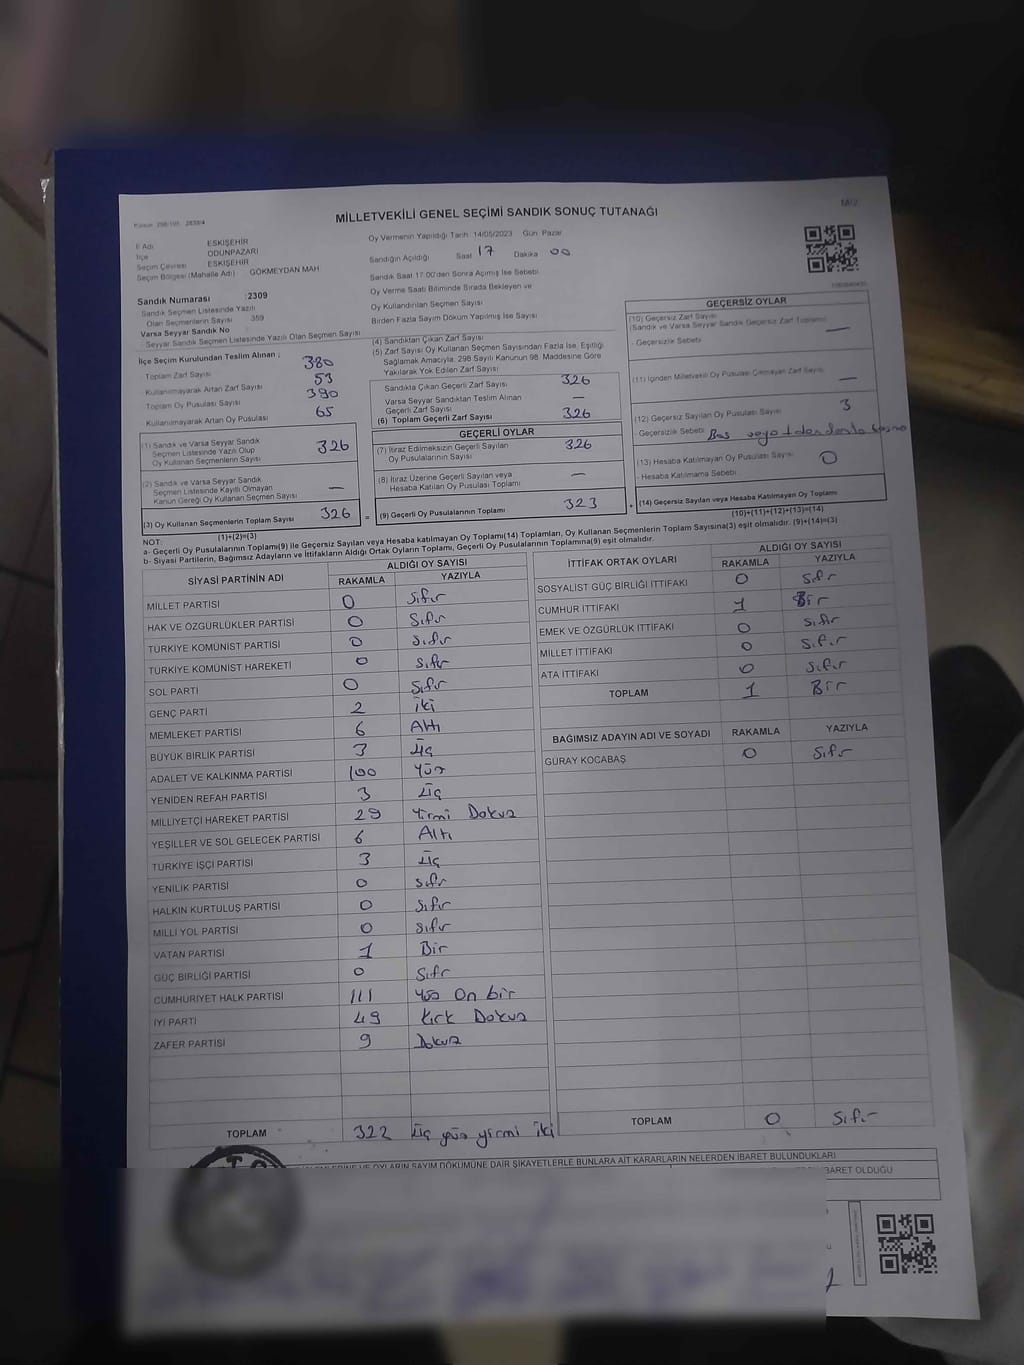 MİLLETVEKİLİ GENEL SEÇİMİ SANDIK SONUÇ TUTANAĞI
İl Adı ESKİŞEHİR
İlçe ODUNPAZARI
Seçim Çevresi ESKİŞEHİR
Seçim Bölgesi (Mahalle Adı) GÖKMEYDAN MAH.
Sandık Numarası :2309
Sandık Seçmen Listesinde Yazılı
Olan Seçmenlerin Sayısı 359
Varsa Seyyar Sandık No
Seyyar Sandık Seçmen Listesinde Yazılı Olan Seçmen Sayısı
Oy Vermenin Yapıldığı Tarih 14/05/2023 Gün: Pazar
Sandığın Açıldığı Saat 17 Dakika 00
Sandık Saat 17:00'den Sonra Açılmış İse Sebebi
Oy Verme Saati Bitiminde Sırada Bekleyen ve
Oy Kullandırılan Seçmen Sayısı
Birden Fazla Sayım Döküm Yapılmış İse Sayısı
İlçe Seçim Kurulundan Teslim Alınan ;
Toplam Zarf Sayısı 380
Kullanılmayarak Artan Zarf Sayısı 53
Toplam Oy Pusulası Sayısı 390
Kullanılmayarak Artan Oy Pusulası 65
(1) Sandık ve Varsa Seyyar Sandık
Seçmen Listesinde Yazılı Olup
Oy Kullanan Seçmenlerin Sayısı 326
(2) Sandık ve Varsa Seyyar Sandık
Seçmen Listesinde Kayıtlı Olmayan
Kanun Gereği Oy Kullanan Seçmen Sayısı —
(3) Oy Kullanan Seçmenlerin Toplam Sayısı 326 =
(1)+(2)=(3)
(4) Sandıktan Çıkan Zarf Sayısı
(5) Zarf Sayısı Oy Kullanan Seçmen Sayısından Fazla İse, Eşitliği
Sağlamak Amacıyla, 298 Sayılı Kanunun 98. Maddesine Göre
Yakılarak Yok Edilen Zarf Sayısı
Sandıkta Çıkan Geçerli Zarf Sayısı 326
Varsa Seyyar Sandıktan Teslim Alınan
Geçerli Zarf Sayısı —
(6) Toplam Geçerli Zarf Sayısı 326
GEÇERLİ OYLAR
(7) İtiraz Edilmeksizin Geçerli Sayılan
Oy Pusulalarının Sayısı 326
(8) İtiraz Üzerine Geçerli Sayılan veya
Hesaba Katılan Oy Pusulası Toplamı —
(9) Geçerli Oy Pusulalarının Toplamı 323 +
GEÇERSİZ OYLAR
(10) Geçersiz Zarf Sayısı
(Sandık ve Varsa Seyyar Sandık Geçersiz Zarf Toplamı) —
- Geçersizlik Sebebi
(11) İçinden Milletvekili Oy Pusulası Çıkmayan Zarf Sayısı —
(12) Geçersiz Sayılan Oy Pusulası Sayısı 3
Geçersizlik Sebebi Boş veya
(13) Hesaba Katılmayan Oy Pusulası Sayısı 0
Hesaba Katılmama Sebebi
(14) Geçersiz Sayılan veya Hesaba Katılmayan Oy Toplamı
(10)+(11)+(12)+(13)=(14)
NOT:
a- Geçerli Oy Pusulalarının Toplamı(9) ile Geçersiz Sayılan veya Hesaba katılmayan Oy Toplamı(14) Toplamları, Oy Kullanan Seçmenlerin Toplam Sayısına(3) eşit olmalıdır. (9)+(14)=(3)
b- Siyasi Partilerin, Bağımsız Adayların ve İttifakların Aldığı Ortak Oyların Toplamı, Geçerli Oy Pusulalarının Toplamına(9) eşit olmalıdır.
SİYASİ PARTİNİN ADI ALDIĞI OY SAYISI
RAKAMLA YAZIYLA
MİLLET PARTİSİ 0 Sıfır
HAK VE ÖZGÜRLÜKLER PARTİSİ 0 Sıfır
TÜRKİYE KOMÜNİST PARTİSİ 0 Sıfır
TÜRKİYE KOMÜNİST HAREKETİ 0 Sıfır
SOL PARTİ 0 Sıfır
GENÇ PARTİ 2 iki
MEMLEKET PARTİSİ 6 Altı
BÜYÜK BİRLİK PARTİSİ 3 Üç
ADALET VE KALKINMA PARTİSİ 100 Yüz
YENİDEN REFAH PARTİSİ 3 Üç
MİLLİYETÇİ HAREKET PARTİSİ 29 Yirmi Dokuz
YEŞİLLER VE SOL GELECEK PARTİSİ 6 Altı
TÜRKİYE İŞÇİ PARTİSİ 3 Üç
YENİLİK PARTİSİ 0 Sıfır
HALKIN KURTULUŞ PARTİSİ 0 Sıfır
MİLLİ YOL PARTİSİ 0 Sıfır
VATAN PARTİSİ 1 Bir
GÜÇ BİRLİĞİ PARTİSİ 0 Sıfır
CUMHURİYET HALK PARTİSİ 111 Yüz On bir
İYİ PARTİ 49 Kırk Dokuz
ZAFER PARTİSİ 9 Dokuz
TOPLAM 322 Üç yüz yirmi iki
İTTİFAK ORTAK OYLARI ALDIĞI OY SAYISI
RAKAMLA YAZIYLA
SOSYALİST GÜÇ BİRLİĞİ İTTİFAKI 0 Sıfır
CUMHUR İTTİFAKI 1 Bir
EMEK VE ÖZGÜRLÜK İTTİFAKI 0 Sıfır
MİLLET İTTİFAKI 0 Sıfır
ATA İTTİFAKI 0 Sıfır
TOPLAM 1 Bir
BAĞIMSIZ ADAYIN ADI VE SOYADI RAKAMLA YAZIYLA
GÜRAY KOCABAŞ 0 Sıfır
TOPLAM 0 Sıfır
OYLARIN SAYIM DÖKÜMÜNE DAİR ŞİKAYETLERLE BUNLARA AİT KARARLARIN NELERDEN İBARET BULUNDUKLARI
İBARET OLDUĞU